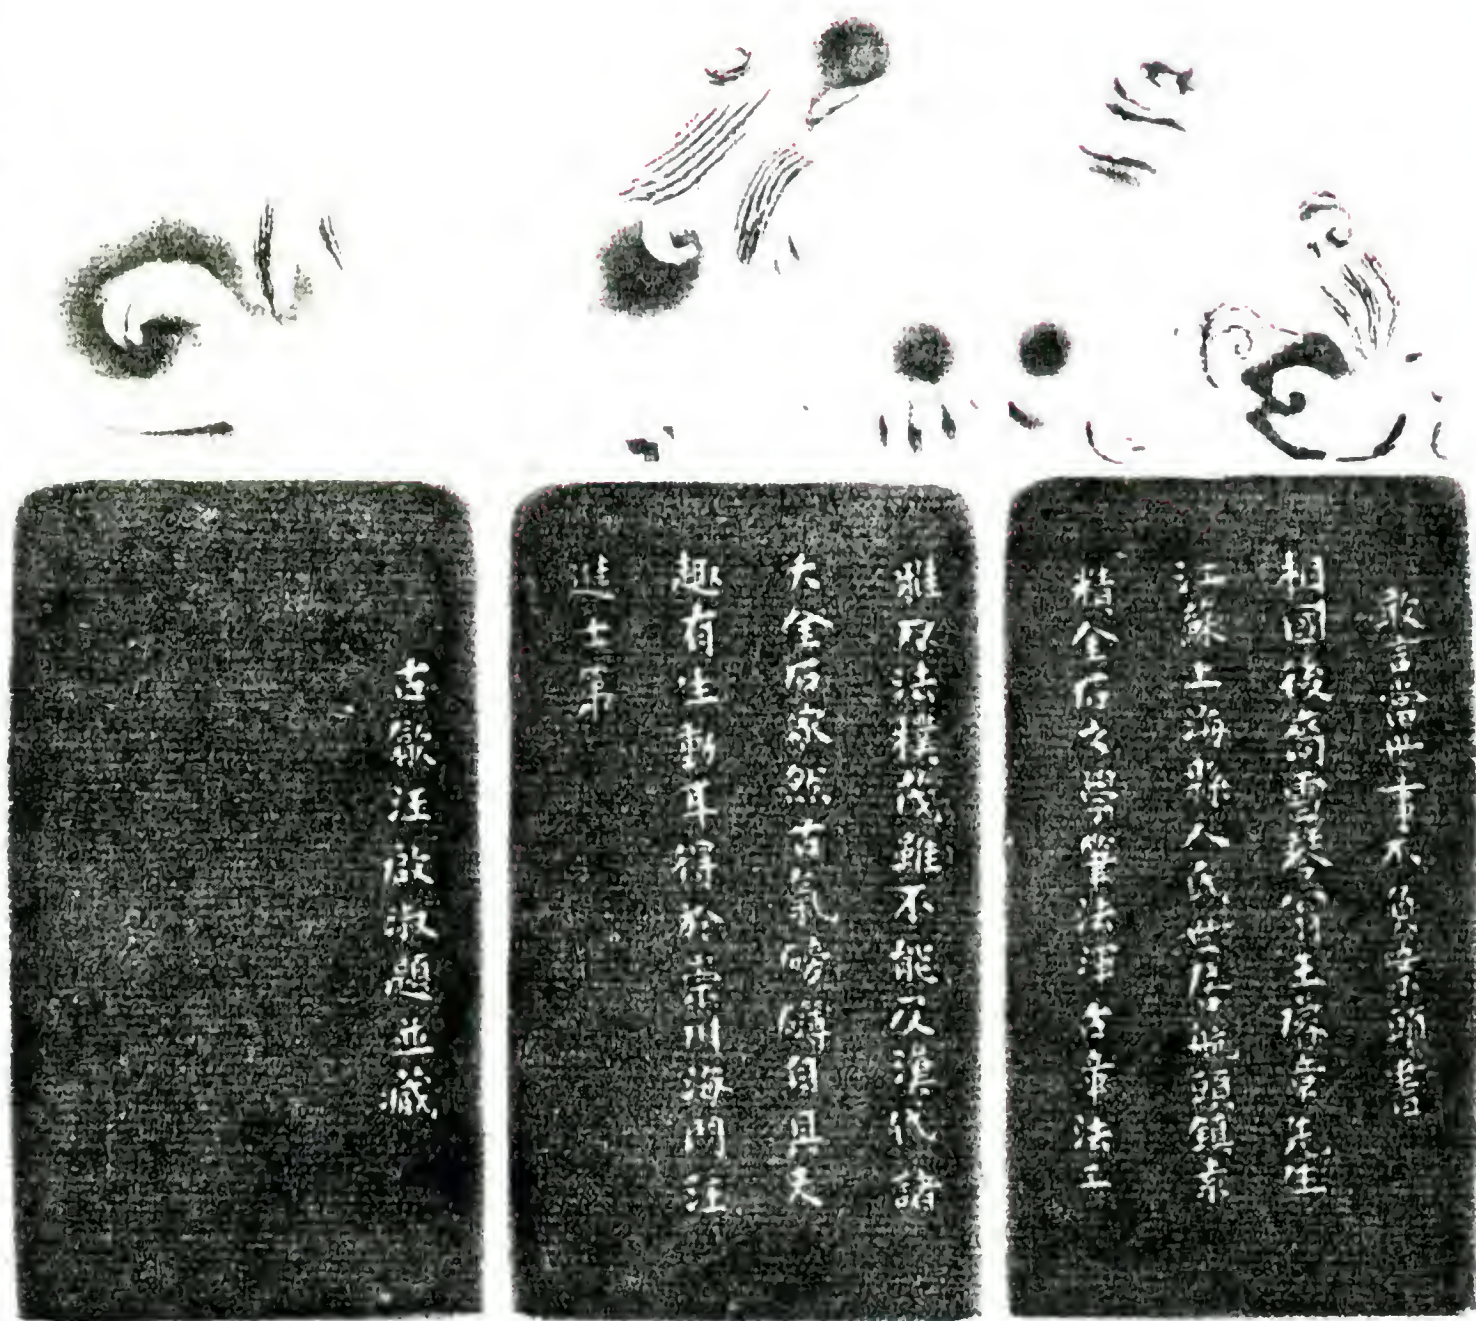 敢言當世事不負字頭書
相國後裔雲琴翁王嶙嵩先生
江蘇上海縣人氏世居航頭鎮素
精金石之學筆法渾古章法工
雅刀法樸茂雖不能及漢代諸
大金石家然古氣磅礴自且天
趣有生動耳得於崇川海門汪
進士家
古歙汪啟淑題並藏